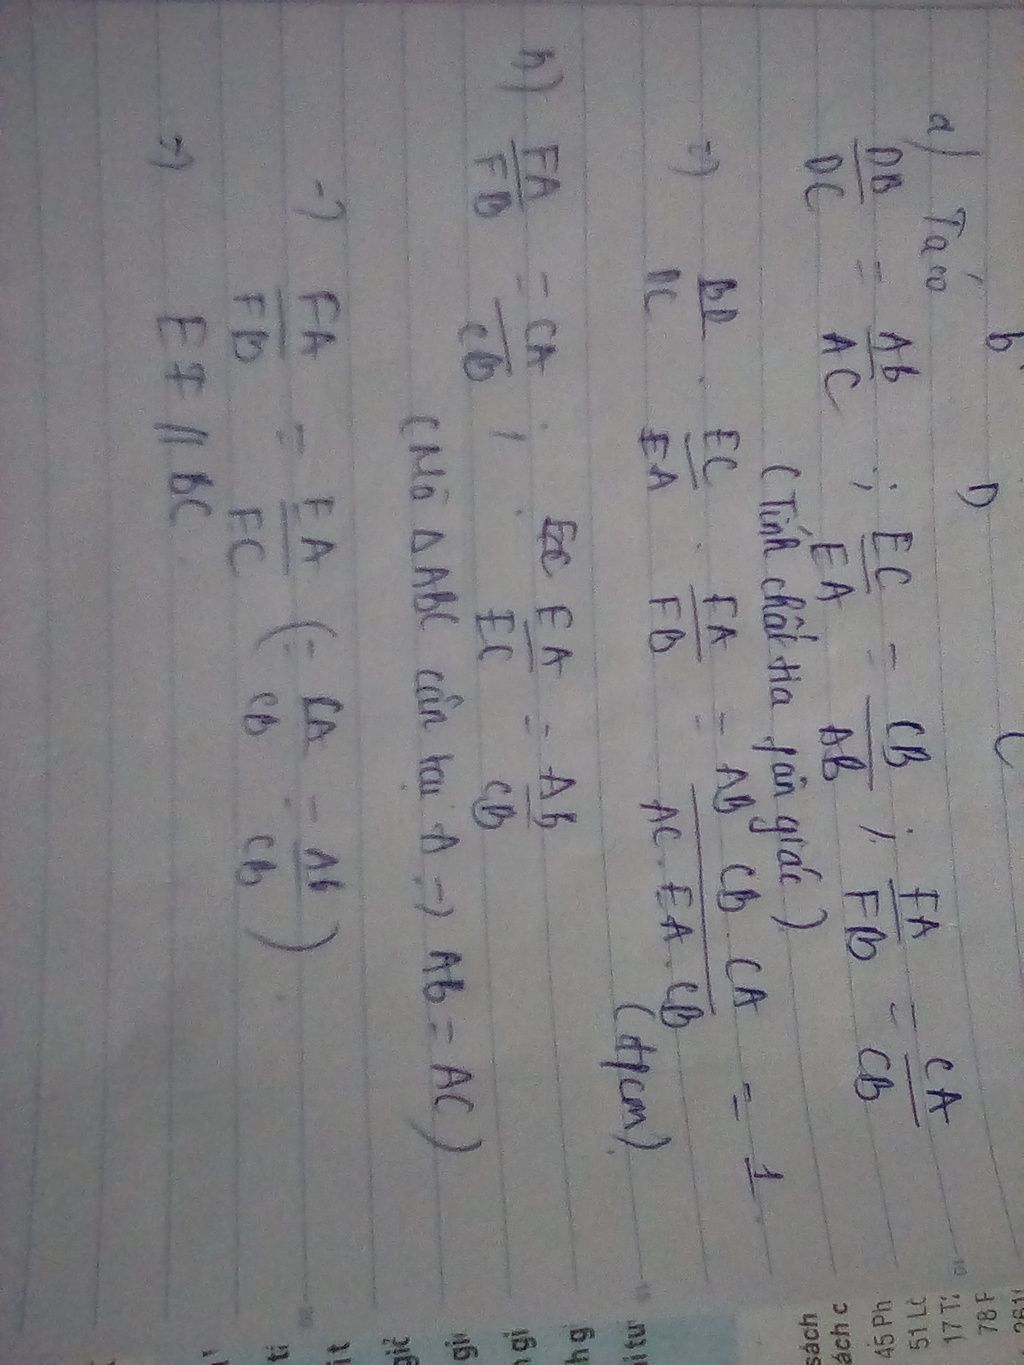 b D C
a) Ta có
DB/DC = AB/AC ; EC/EA = CB/AB ; FA/FB = CA/CB
(Tính chất tia pân giác)
=) BD/DC . EC/EA . FA/FB = AB CB CA/AC . EA . CB = 1
(đpcm)
b) FA/FB = CA/CB ; EA/EC = AB/CB
(Mà Δ ABC cân tại A =) AB = AC)
=) FA/FB = EA/EC (= CA/CB = AB/CB)
=) EF // BC
sách
ách c
45 Ph
51 Lê
78 F